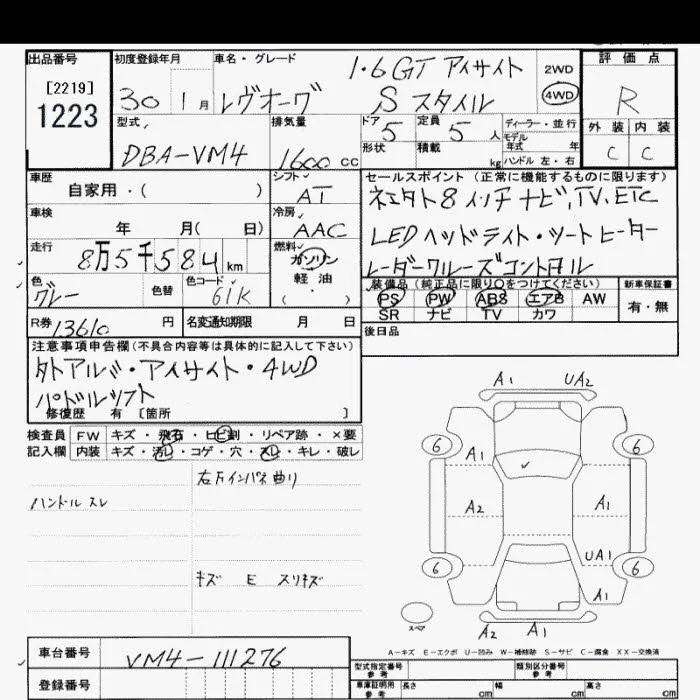 出品番号
[2219]
1223
初度登録年月
30 1 月
車名・グレード
レヴォーグ
1.6GT アイサイト
S スタイル
2WD
4WD
評価点
R
外装 内装
C C
型式
DBA-VM4
排気量
1600 cc
ドア
5
定員
5 人
ディーラー・並行
モデル
年式 年
形状
積載
kg
ハンドル 左・右
車歴
自家用・( )
シフト
AT
車検
年 月( 日)
冷房
AAC
走行
8万5千584 km
燃料
ガソリン
軽油
・( )
色
グレー
色替
色コード
61K
R券
13610 円
名変通知期限 月 日
セールスポイント(正常に機能するものに限ります)
8インチナビ,TV,ETC
LEDヘッドライト・シートヒーター
レーダークルーズコントロール
装備品(純正品に限り○をつけてください)
PS PW ABS エアB AW
SR ナビ TV カワ
新車保証書
有・無
後日品
注意事項申告欄(不具合内容等は具体的に記入して下さい)
外アルミ・アイサイト・4WD
パドルシフト
修復歴 有 [箇所 ]
検査員 FW キズ・飛石・ヒビ割・リペア跡・×要
記入欄 内装 キズ・汚レ・コゲ・穴・スレ・キレ・破レ
ハンドル スレ
右 インパネ 曲り
キズ E スリキズ
A1 UA2
6 6
A1
A2 A1
UA1
6 6
A1
スペア
A2 A1
A-キズ E-エクボ U-凹み W-補修跡 S-サビ C-腐食 XX-交換済
車台番号
VM4-111276
登録番号
型式指定番号
参考
類別区分番号
参考
車庫証明用
参考
長さ cm
幅 cm
高さ cm